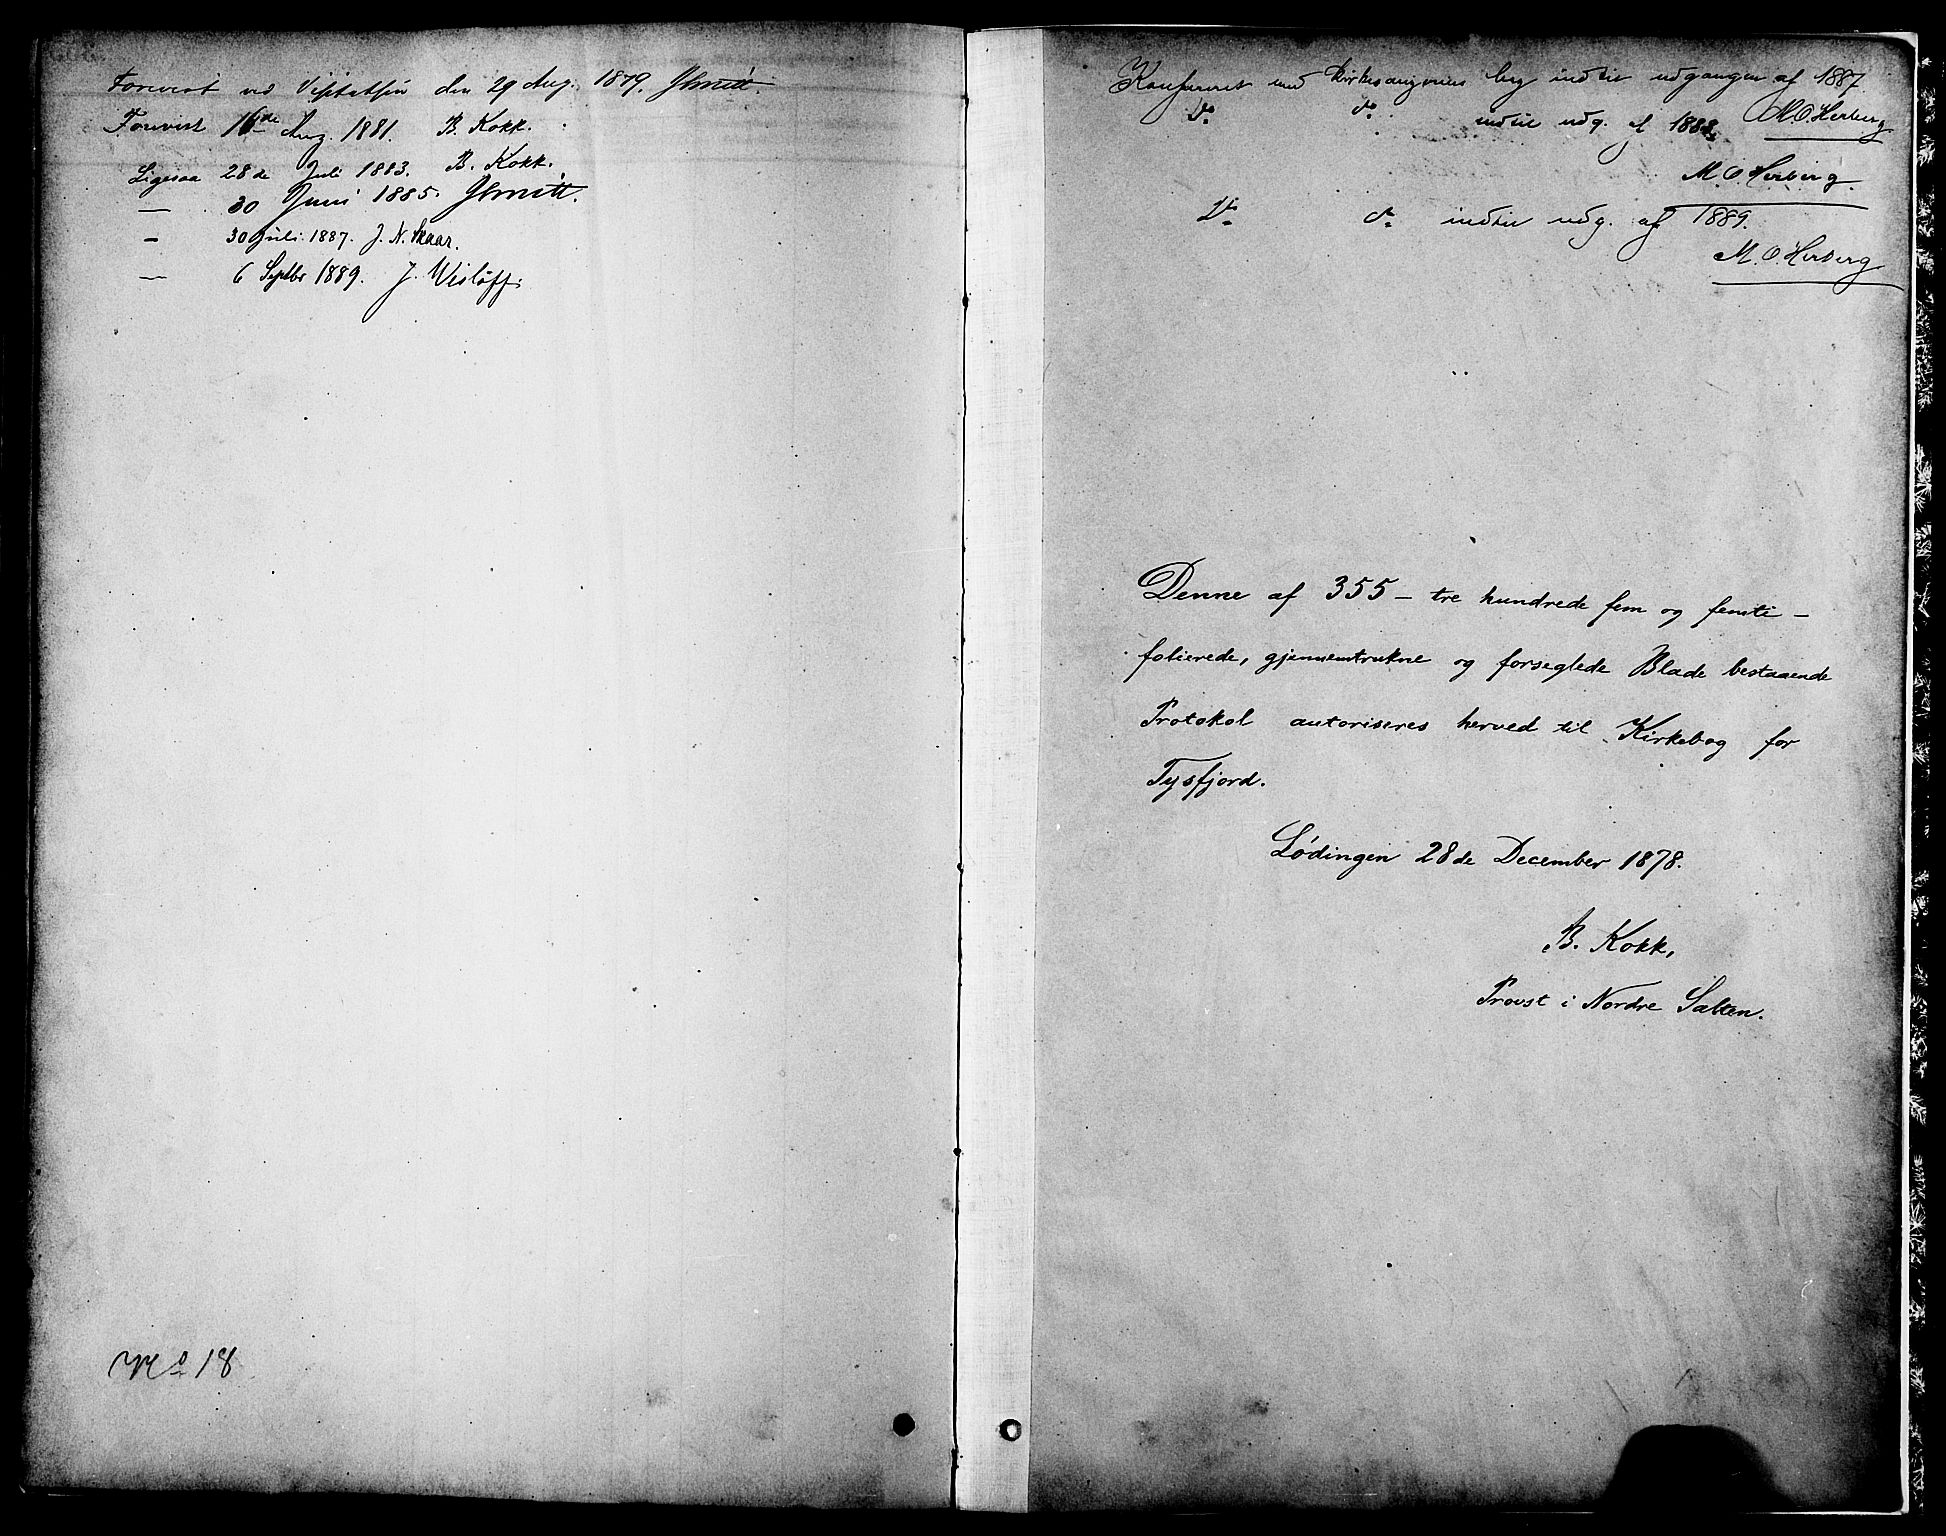 Forevist ved Visitatsen den 29 Aug. 1879. JSmitt.
Forevist 16de Aug. 1881. B. Kokk.
Ligesaa 28de Juli 1883. B. Kokk.
— 30 Juni 1885. JSmitt.
— 30 Juli 1887. J. N. Skaar.
— 6 Septbr 1889. J. Wisløff.
No 18
Konfereret med Kirkesangerens bog indtil udgangen af 1887.
M.O. Herberg
Do do indtil udg. af 1888.
M. O. Herberg.
Do do indtil udg. af 1889.
M. O. Herberg
Denne af 355 — tre hundrede fem og femti —
folierede, gjennemtrukne og forseglede Blade bestaaende
Protokol autoriseres herved til Kirkebog for
Tysfjord.
Lødingen 28de December 1878.
B. Kokk,
Provst i Nordre Salten.